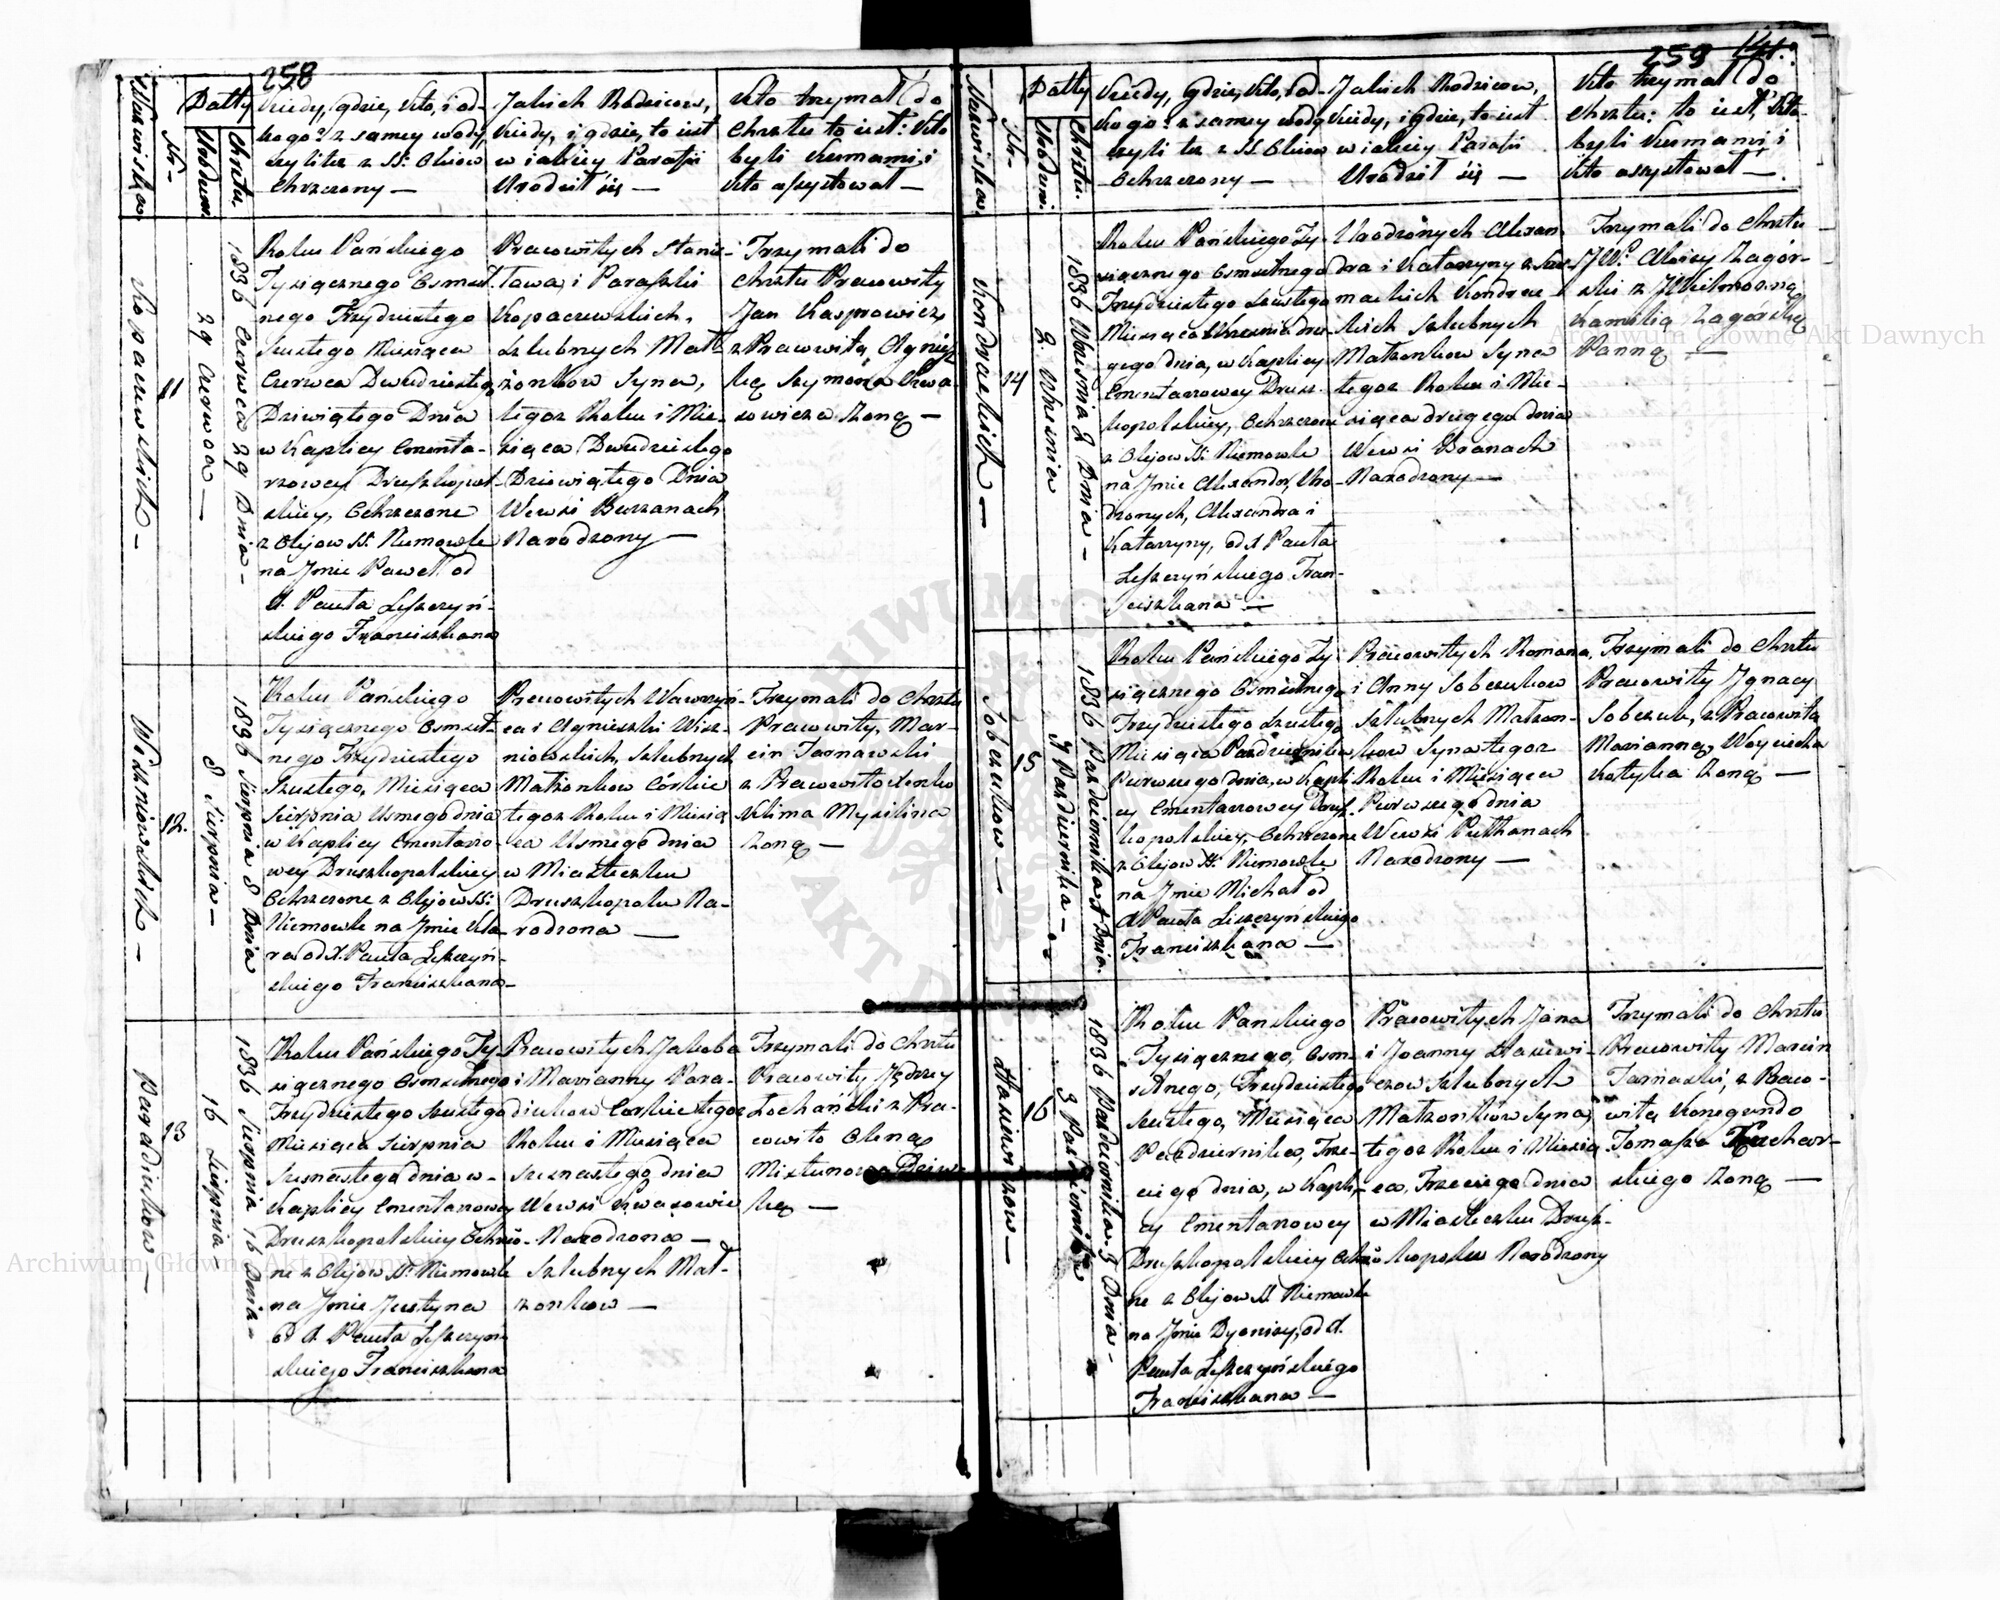 258
Nazwiska
Nr
Datty
Urodzin.
Chrztu.
Kiedy, gdzie, kto, i od-
kogo? z samey wody,
czyli też z SS: Oliiow
Chrzczony —
Jakich Rodzicow,
kiedy, i gdzie, to iest
w iakiey Parafii
Urodził się —
Kto trzymał do
Chrztu to iest: kto
byli kumami, i
kto assystował —
Kopaczewskich —
11
29 Czerwca —
1836 Czerwca 29 Dnia —
Roku Pańskiego
Tysiącznego Osmset
nego Trzydziestego
Szustego Miesiąca
Czerwca Dwudziestego
Dziwiątego Dnia
w Kaplicy Cmenta-
rzowey Druszkopol-
skiey, Ochrzczone
z Olejow SS: Niemowle
na Jmie Paweł od
X. Pawła Leszczyń-
skiego Franciszkana
Pracowitych Stanis-
ława, i Paraszki
Kopaczewskich,
Szlubnych Mał-
żonkow Syna,
tegoz Roku i Mie-
siąca Dwudziestego
Dziewiątego Dnia
Wewsi Burzanach
Narodzony —
Trzymali do
Chrztu Pracowity
Jan Kasprowicz,
z Pracowitą Agniesz
ką Szymona Kwa
sowicza Zoną —
Wiszniowskich —
12.
8 Sierpnia —
1836 Sierpnia 8 Dnia
Roku Pańskiego
Tysiącznego Osmset-
nego Trzydziestego
Szustego, Miesiąca
Sierpnia Usmego dnia
w Kaplicy Cmentarzo-
wey Druszkopolskiey
Ochrzczone z Olejow SS:
Niemowle na Jmie Kla-
ra od X. Pawła Leszczyń-
skiego Franciszkana —
Pracowitych Wawrzyń-
ca i Agnieszki Wisz-
niowskich, Szlubnych
Małzonkow Córka
tegoz Roku i Miesią
ca Usmego dnia
w Miasteczku
Druszkopolu Na-
rodzona —
Trzymali do Chrztu
Pracowity, Mar-
cin Tarnawski
z Pracowitą
Klima Mysilina
Zoną —
Paradiukow —
13
16 Sierpnia —
1836 Sierpnia 16 Dnia —
Roku Pańskiego Ty-
siącznego Osmsetnego
Trzydziestego Szustego
Miesiąca Sierpnia
Szesnastego dnia w-
Kaplicy Cmentarzowey
Druszkopolskiey Ochrzczo-
ne z Olejow SS: Niemowle
na Jmie Justyna
od X. Pawła Leszczyń
skiego Franciszkana
Pracowitych Jakoba
i Maryanny Para-
diukow Corka tegoz
Roku i Miesiąca
Szesnastego dnia
Wewsi Kwasowie
Narodzona —
Szlubnych Mał-
zonkow —
Trzymali do Chrztu
Pracowity Jędrzey
Łochański z Pra-
cowitą Oleną
ką —
259
Nazwiska.
Nr
Datty
Urodzin.
Chrztu.
Kiedy, gdzie, kto, i od-
kogo? z samey wody
czyli też z SS Oliiow
Ochrzczony —
Jakich Rodzicow,
kiedy, i gdzie, to iest
w iakiey Parafii
Urodził się —
Kto trzymał do
Chrztu: to iest, kto-
byli kumami, i
kto assystował —
Kondrackich —
14
2. Wrzesnia
1836 Wrzesnia 2 Dnia —
Roku Pańskiego Ty-
siącznego Osmsetnego
Trzydziestego Szustego
Miesiąca Wrzesnia dru
giego dnia, w Kaplicy
Cmentarzowey Drusz-
kopolskiey, Ochrzczone
z Olejow SS: Niemowle
na Jmie Alexander, Uro-
dzonych, Alexandra i
Katarzyny, od X Pawła
Leszczyńskiego Fran-
ciszkana —
Urodzonych Alexan
dra i Katarzyny z
mackich Kondrac-
kich Szlubnych
Małzonkow Syna
tegoz Roku i Mie-
siąca drugiego dnia
Wewsi Branach
Narodzony —
Trzymali do Chrztu
JWP. Aloizy Zagór-
ski z JWielmozną
Kamillą Zagórską
Panną —
Sobczukow —
15
1 Pazdziernika —
1836 Pazdziernika 1 Dnia.
Roku Pańskiego Ty
siącznego Osmsetnego
Trzydziestego Szustego
Miesiąca Pazdziernika
Pierwszego dnia, w Kapli-
cy Cmentarzowey Drusz-
kopolskiey, Ochrzczone
z Olejow SS: Niemowle
na Jmie Michał od
X Pawła Leszczyńskiego
Franciszkana —
Pracowitych Romana
i Anny Sobczukow
Szlubnych Małzon-
kow Syna tegoz
Roku i Miesiąca
Pierwszego dnia
Wewsi Pułhanach
Narodzony —
Trzymali do Chrztu
Pracowity Jgnacy
Sobczuk, z Pracowitą
Marianną, Woyciecha
Kotyka Zoną —
16
3 Pazdziernika
1836 Pazdziernika 3 Dnia —
Roku Panskiego
Tysiącznego, Osm-
setnego, Trzydziestego
Szustego, Miesiąca
Pazdziernika, Trze-
ciego dnia, w Kapli-
cy Cmentarzowey
Druszkopolskiey Ochrzczo
ne z Olejow SS Niemowle
na Jmie Dyonizy, od X.
Pawła Leszczyńskiego
Franciszkana —
Pracowitych Jana
i Joanny Hasiewi-
czow Szlubnych
Małzonków Syna,
tegoz Roku i Miesią
ca, Trzeciego dnia
w Miasteczku Drusz-
kopolu Narodzony
Trzymali do Chrztu
Pracowity Marcin
Tarnaski, z Praco-
witą Konegundo
Tomasza Kuchar-
skiego Zoną —
Archiwum Główne Akt Dawnych
Archiwum Główne Akt Dawnych